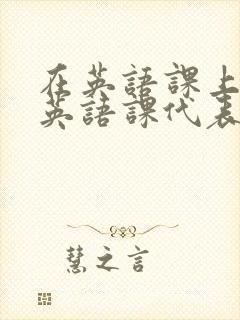 在英語課上
英語課代表
慧之言